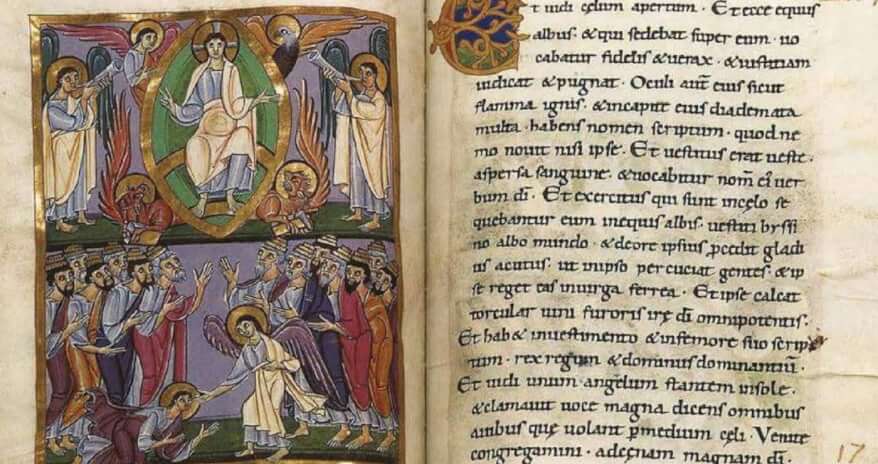 Et uidi celum apertum · Et ecce equus
albus · & qui sedebat super eum · uo
cabatur fidelis & uerax · & iustitiam
iudicat & pugnat · Oculi aut ei᷒ sicut
flamma ignis · & in capite eius diademata
multa · habens nomen scriptum · quod ne
mo nouit nisi ipse · Et uestitus erat ueste ·
aspersa sanguine · & uocabitur nom ei uer
bum dī · Et exercitus qui sunt in celo se
quebantur eum in equis albis · uestiti byssi
no albo mundo · & de ore ipsius pcedit gladi
us acutus · ut in ipso percutiat gentes · & ip
se reget eas in uirga ferrea · Et ipse calcat
torcular uini furoris irę dī omnipotentis ·
Et hab& in uestimento & in femore suo scrip
tum · rex regum & dominus dominantiū ·
Et uidi unum angelum stantem in sole ·
& clamauit uoce magna dicens omnibus
auibus quę uolant p medium celi · Venite
congregamini · ad cęnam magnam dī ·
17